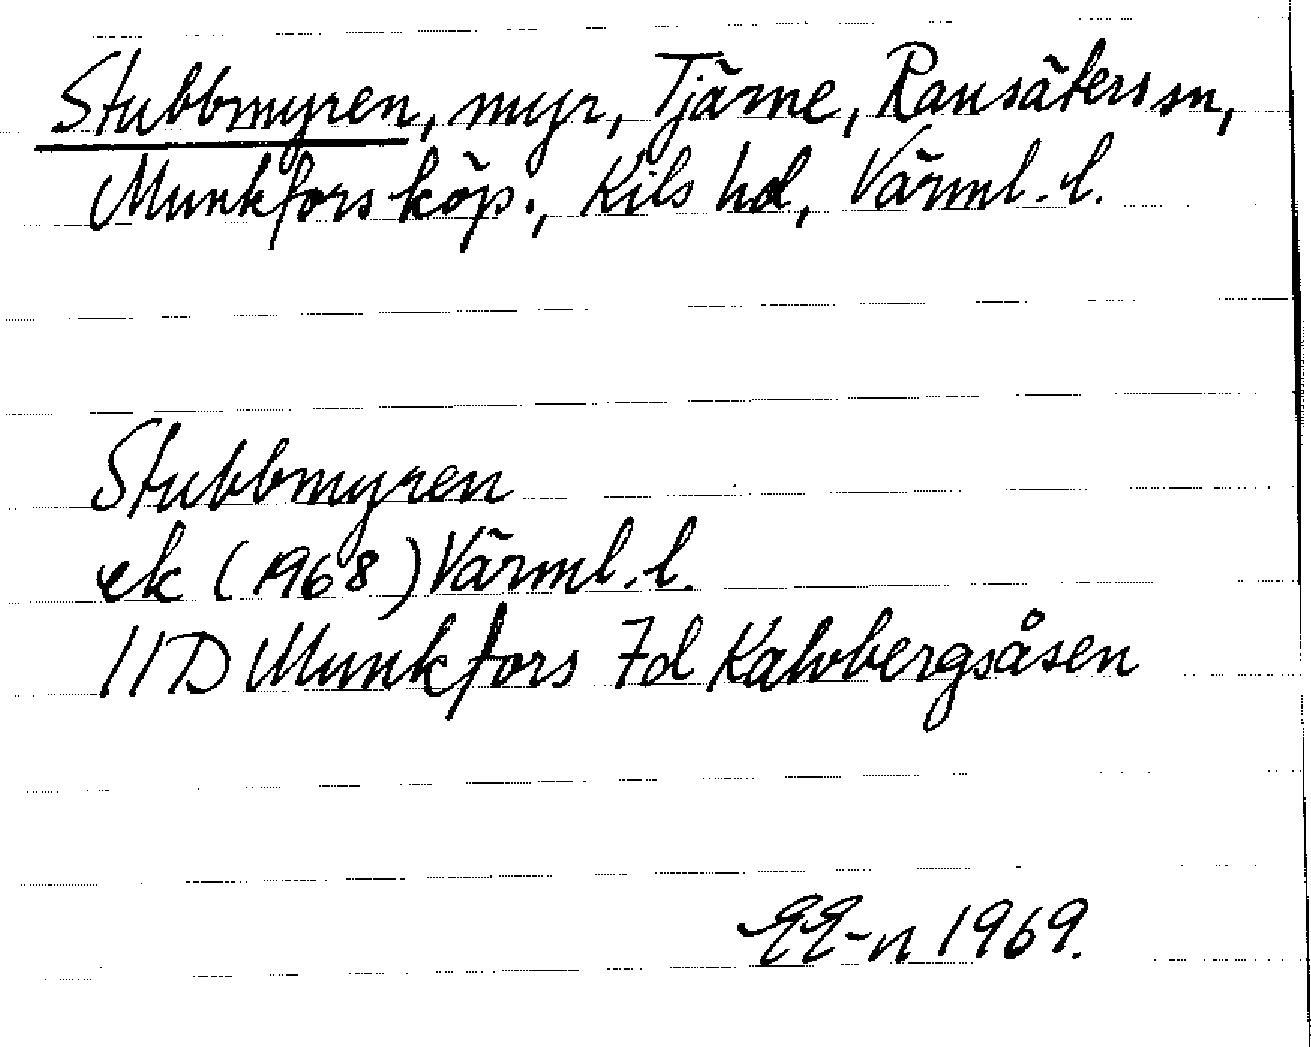 Stubbmyren, myr, Tjärne, Ransäters sn,
Munkfors köp., Kils hd, Värml. l.
Stubbmyren
ek (1968) Värml. l.
11D Munkfors 7d Kalvbergsåsen
EE-n 1969.